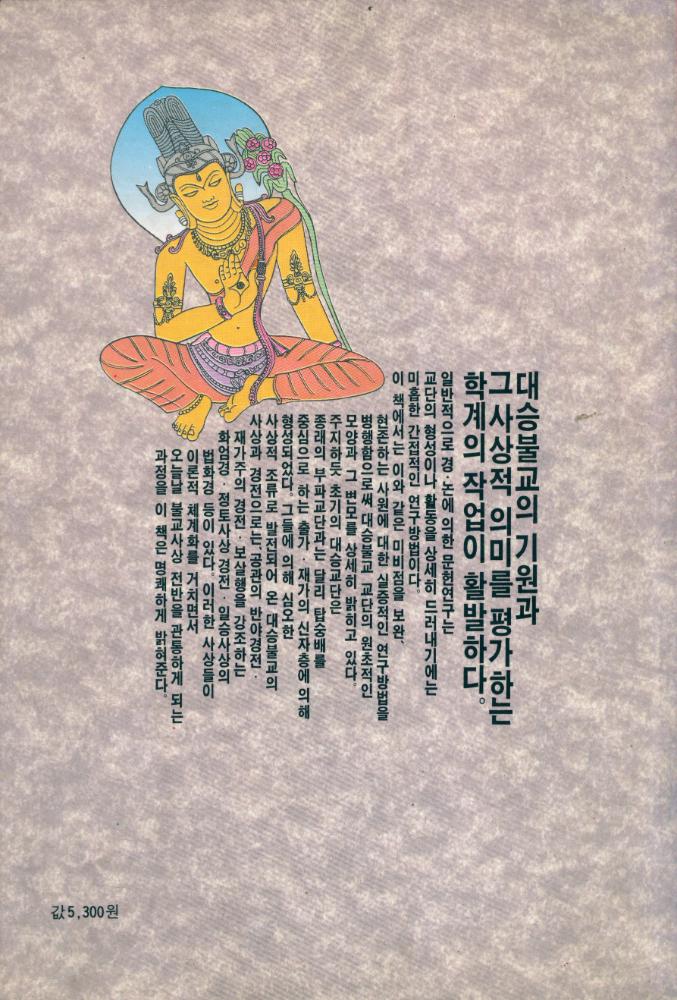 대승불교의 기원과
그 사상적 의미를 평가하는
학계의 작업이 활발하다.
일반적으로 경·논에 의한 문헌연구는
교단의 형성이나 활동을 상세히 드러내기에는
미흡한 간접적인 연구방법이다.
이 책에서는 이와 같은 미비점을 보완,
현존하는 사원에 대한 실증적인 연구방법을
병행함으로써 대승불교 교단의 원초적인
모양과 그 변모를 상세히 밝히고 있다.
주지하듯 초기의 대승교단은
종래의 부파교단과는 달리 탑숭배를
중심으로 하는 출가·재가의 신자층에 의해
형성되었다. 그들에 의해 심오한
사상적 조류로 발전되어 온 대승불교의
사상과 경전으로는 공관의 반야경전·
재가주의 경전·보살행을 강조하는
화엄경·정토사상 경전·일승사상의
법화경 등이 있다. 이러한 사상들이
이론적 체계화를 거치면서
오늘날 불교사상 전반을 관통하게 되는
과정을 이 책은 명쾌하게 밝혀준다.
값 5,300원